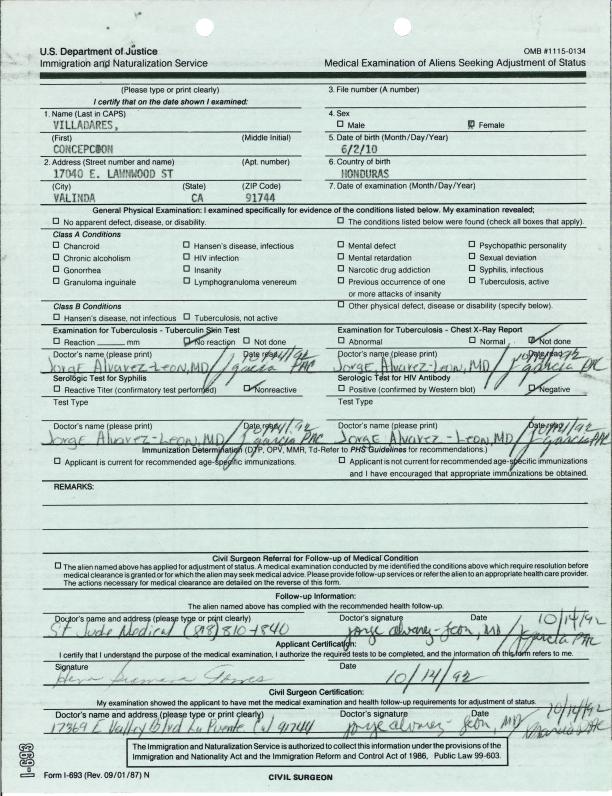 U.S. Department of Justice
OMB #1115-0134
Immigration and Naturalization Service
Medical Examination of Aliens Seeking Adjustment of Status
(Please type or print clearly)
I certify that on the date shown I examined:
3. File number (A number)
1. Name (Last in CAPS)
VILLADARES,
4. Sex
Male
Female
(First)
(Middle Initial)
CONCEPCION
5. Date of birth (Month/Day/Year)
6/2/10
2. Address (Street number and name)
(Apt. number)
17040 E. LAWNWOOD ST
6. Country of birth
HONDURAS
(City)
(State)
(ZIP Code)
VALINDA
CA
91744
7. Date of examination (Month/Day/Year)
General Physical Examination: I examined specifically for evidence of the conditions listed below. My examination revealed;
No apparent defect, disease, or disability.
The conditions listed below were found (check all boxes that apply).
Class A Conditions
Chancroid
Hansen's disease, infectious
Mental defect
Psychopathic personality
Chronic alcoholism
HIV infection
Mental retardation
Sexual deviation
Gonorrhea
Insanity
Narcotic drug addiction
Syphilis, infectious
Granuloma inguinale
Lymphogranuloma venereum
Previous occurrence of one
or more attacks of insanity
Tuberculosis, active
Class B Conditions
Other physical defect, disease or disability (specify below).
Hansen's disease, not infectious
Tuberculosis, not active
Examination for Tuberculosis - Tuberculin Skin Test
Examination for Tuberculosis - Chest X-Ray Report
Reaction ______ mm
No reaction
Not done
Abnormal
Normal
Not done
Doctor's name (please print)
Date read
10/14/92
Doctor's name (please print)
Date read
Jorge Alvarez-Leon, MD / J garcia PAC
Jorge Alvarez-Leon, MD / J garcia PAC
Serologic Test for Syphilis
Serologic Test for HIV Antibody
Reactive Titer (confirmatory test performed)
Nonreactive
Positive (confirmed by Western blot)
Negative
Test Type
Test Type
Doctor's name (please print)
Date read
10/14/92
Doctor's name (please print)
Date read
10/14/92
Jorge Alvarez-Leon, MD / J garcia PAC
Jorge Alvarez-Leon, MD / J garcia PAC
Immunization Determination (DTP, OPV, MMR, Td-Refer to PHS Guidelines for recommendations.)
Applicant is current for recommended age-specific immunizations.
Applicant is not current for recommended age-specific immunizations
and I have encouraged that appropriate immunizations be obtained.
REMARKS:
Civil Surgeon Referral for Follow-up of Medical Condition
The alien named above has applied for adjustment of status. A medical examination conducted by me identified the conditions above which require resolution before
medical clearance is granted or for which the alien may seek medical advice. Please provide follow-up services or refer the alien to an appropriate health care provider.
The actions necessary for medical clearance are detailed on the reverse of this form.
Follow-up Information:
The alien named above has complied with the recommended health follow-up.
Doctor's name and address (please type or print clearly)
Doctor's signature
Date
10/14/92
St Jude Medical (818) 810-1840
Jorge Alvarez-Leon, MD / J garcia PAC
Applicant Certification:
I certify that I understand the purpose of the medical examination, I authorize the required tests to be completed, and the information on this form refers to me.
Signature
Date
10/14/92
Civil Surgeon Certification:
My examination showed the applicant to have met the medical examination and health follow-up requirements for adjustment of status.
Doctor's name and address (please type or print clearly)
Doctor's signature
Date
10/14/92
17369 E Valley Blvd La Puente Ca 91744
Jorge Alvarez-Leon, MD / J Garcia PAC
I-693
The Immigration and Naturalization Service is authorized to collect this information under the provisions of the
Immigration and Nationality Act and the Immigration Reform and Control Act of 1986, Public Law 99-603.
Form I-693 (Rev. 09/01/87) N
CIVIL SURGEON